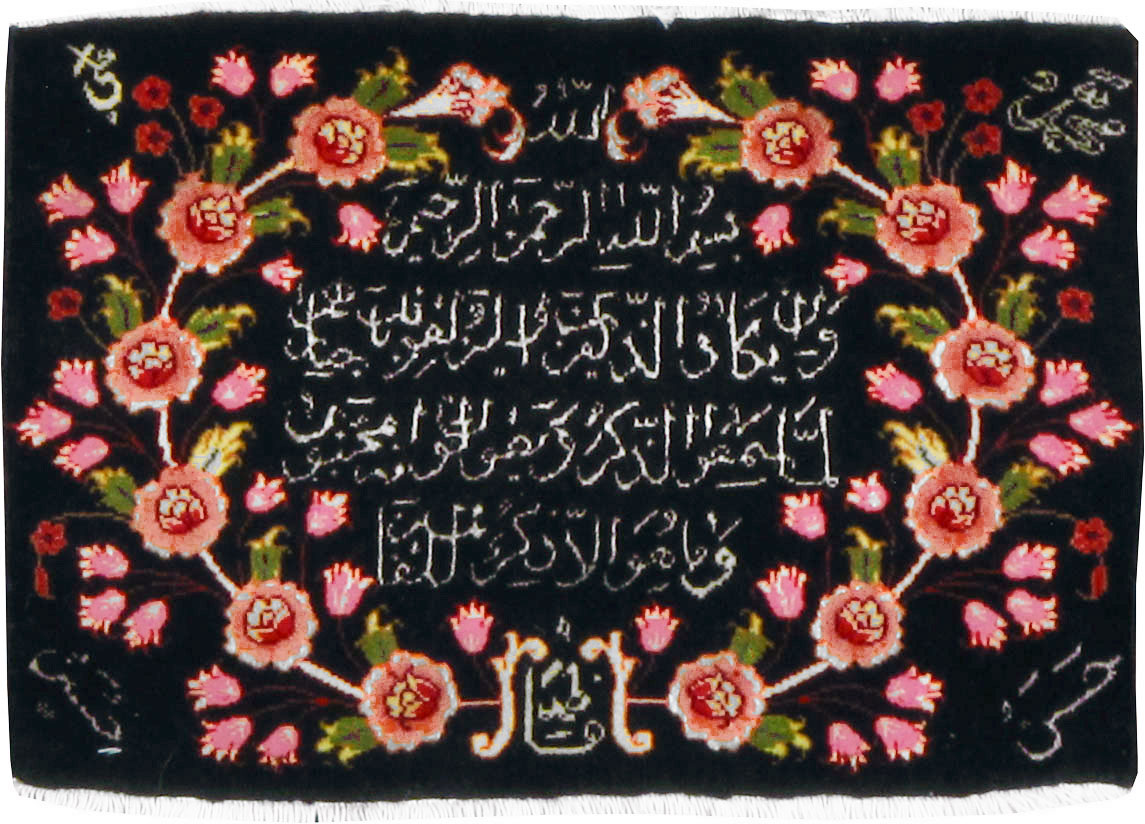 الله
محمد
علی
بِسْمِ اللَّهِ الرَّحْمَنِ الرَّحِیمِ
وَاِنْ یَکَادُ الَّذِینَ کَفَرُوا لَیُزْلِقُونَکَ بِاَبْصَارِهِمْ
لَمَّا سَمِعُوا الذِّکْرَ وَیَقُولُونَ اِنَّهُ لَمَجْنُونٌ
وَمَا هُوَ اِلَّا ذِکْرٌ لِلْعَالَمِینَ
فاطمه
حسن
حسین